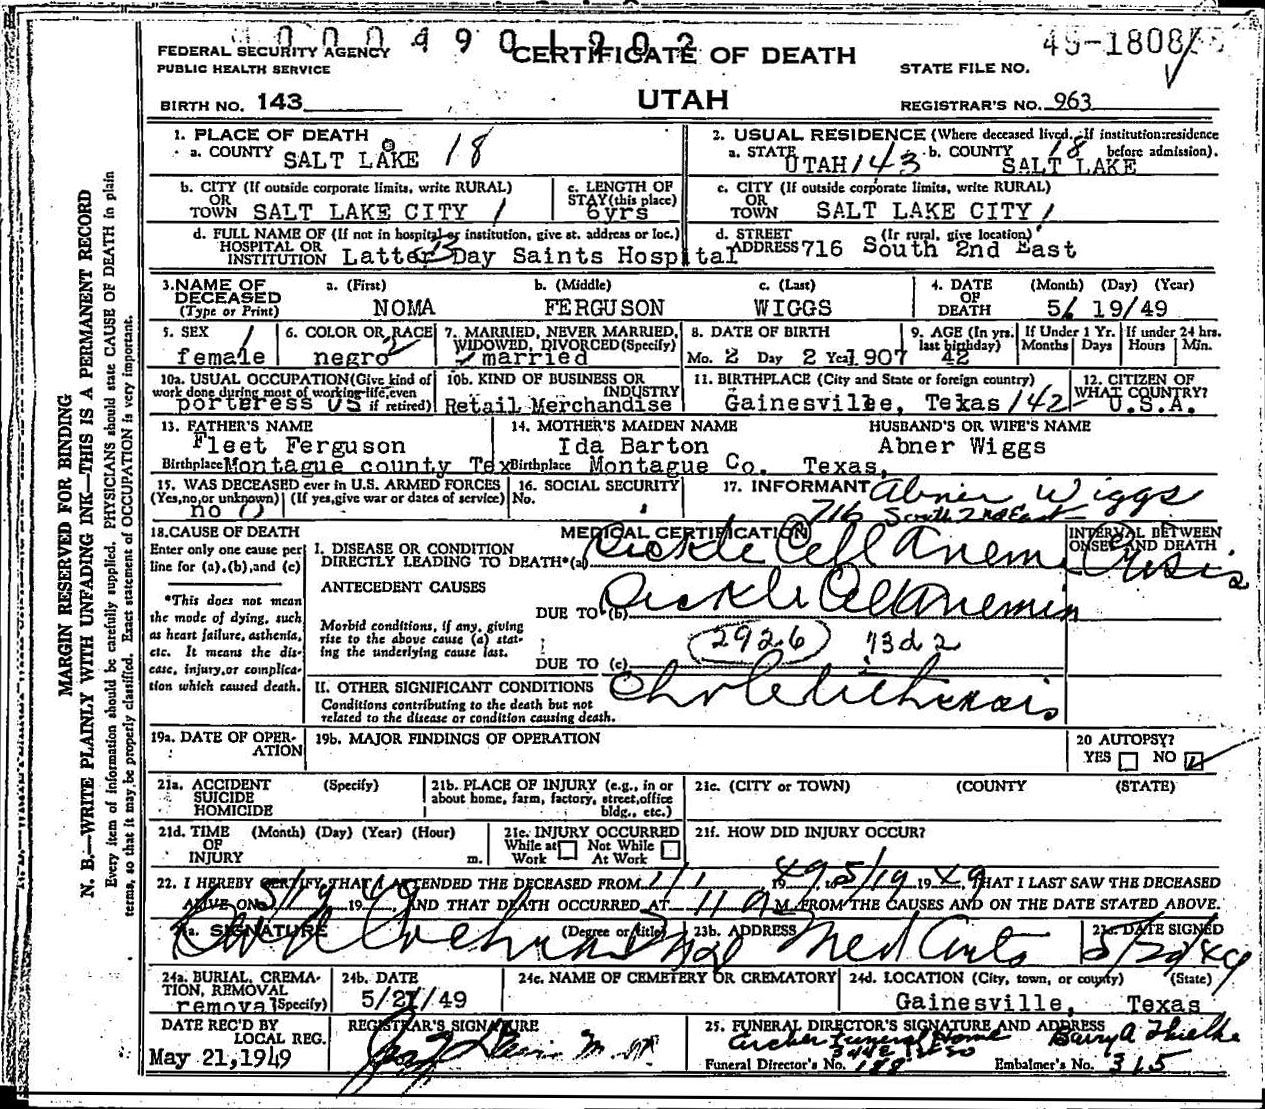 0000490 1902
49-1808
FEDERAL SECURITY AGENCY
PUBLIC HEALTH SERVICE
CERTIFICATE OF DEATH
STATE FILE NO.
BIRTH NO. 143
UTAH
REGISTRAR'S NO. 963
MARGIN RESERVED FOR BINDING
N. B.—WRITE PLAINLY WITH UNFADING INK—THIS IS A PERMANENT RECORD
Every item of information should be carefully supplied. PHYSICIANS should state CAUSE OF DEATH in plain
terms, so that it may be properly classified. Exact statement of OCCUPATION is very important.
1. PLACE OF DEATH
a. COUNTY SALT LAKE 18
2. USUAL RESIDENCE (Where deceased lived. If institution: residence before admission).
a. STATE UTAH 143 b. COUNTY 18 SALT LAKE
b. CITY (If outside corporate limits, write RURAL)
OR TOWN SALT LAKE CITY 1
c. LENGTH OF STAY (this place) 6yrs
c. CITY (If outside corporate limits, write RURAL)
OR TOWN SALT LAKE CITY 1
d. FULL NAME OF (If not in hospital or institution, give st. address or loc.)
HOSPITAL OR INSTITUTION Latter Day Saints Hospital 13
d. STREET ADDRESS (If rural, give location) 716 South 2nd East
3. NAME OF DECEASED (Type or Print)
a. (First) NOMA
b. (Middle) FERGUSON
c. (Last) WIGGS
4. DATE OF DEATH (Month) (Day) (Year) 5/ 19/49
5. SEX female 1
6. COLOR OR RACE negro 2
7. MARRIED, NEVER MARRIED, WIDOWED, DIVORCED (Specify) married
8. DATE OF BIRTH Mo. 2 Day 2 Year 1907
9. AGE (In yrs. last birthday) 42
If Under 1 Yr. Months Days
If under 24 hrs. Hours Min.
10a. USUAL OCCUPATION (Give kind of work done during most of working life, even if retired) porteress US
10b. KIND OF BUSINESS OR INDUSTRY Retail Merchandise
11. BIRTHPLACE (City and State or foreign country) Gainesville, Texas 142
12. CITIZEN OF WHAT COUNTRY? U.S.A.
13. FATHER'S NAME Fleet Ferguson
Birthplace Montague county Tex
14. MOTHER'S MAIDEN NAME Ida Barton
Birthplace Montague Co. Texas,
HUSBAND'S OR WIFE'S NAME Abner Wiggs
15. WAS DECEASED ever in U.S. ARMED FORCES
(Yes, no, or unknown) (If yes, give war or dates of service) no 0
16. SOCIAL SECURITY No.
17. INFORMANT Abner Wiggs
716 South 2nd East
18. CAUSE OF DEATH
Enter only one cause per line for (a), (b), and (c)
*This does not mean the mode of dying, such as heart failure, asthenia, etc. It means the disease, injury, or complication which caused death.
MEDICAL CERTIFICATION
INTERVAL BETWEEN ONSET AND DEATH
I. DISEASE OR CONDITION DIRECTLY LEADING TO DEATH* (a) Sickle Cell Anemi Crisis
ANTECEDENT CAUSES
DUE TO (b) Sickle Cell Anemia
Morbid conditions, if any, giving rise to the above cause (a) stating the underlying cause last.
292.6 73d2
DUE TO (c)
II. OTHER SIGNIFICANT CONDITIONS Cholelithiasis
Conditions contributing to the death but not related to the disease or condition causing death.
19a. DATE OF OPERATION
19b. MAJOR FINDINGS OF OPERATION
20 AUTOPSY?
YES NO
21a. ACCIDENT SUICIDE HOMICIDE (Specify)
21b. PLACE OF INJURY (e.g., in or about home, farm, factory, street, office bldg., etc.)
21c. (CITY or TOWN) (COUNTY) (STATE)
21d. TIME OF INJURY (Month) (Day) (Year) (Hour) m.
21e. INJURY OCCURRED While at Work Not While At Work
21f. HOW DID INJURY OCCUR?
22. I HEREBY CERTIFY THAT I ATTENDED THE DECEASED FROM 1/1 1949, to 5/19 1949, THAT I LAST SAW THE DECEASED
ALIVE ON 5/19 1949 AND THAT DEATH OCCURRED AT 11 A M. FROM THE CAUSES AND ON THE DATE STATED ABOVE.
23a. SIGNATURE (Degree or title)
23b. ADDRESS Med Arts
23c. DATE SIGNED 5/20/49
24a. BURIAL, CREMATION, REMOVAL (Specify) removal
24b. DATE 5/21/49
24c. NAME OF CEMETERY OR CREMATORY
24d. LOCATION (City, town, or county) (State) Gainesville, Texas
DATE REC'D BY LOCAL REG. May 21, 1949
REGISTRAR'S SIGNATURE
25. FUNERAL DIRECTOR'S SIGNATURE AND ADDRESS
Funeral Home Barry A Thielke
Funeral Director's No. 188 Embalmer's No. 315